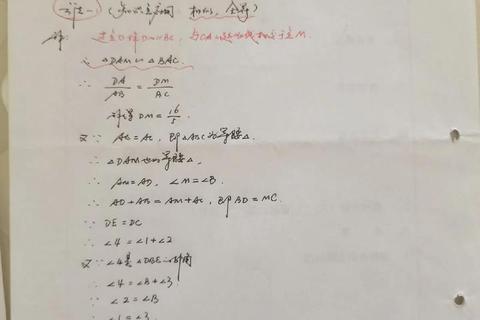 方法一 (知识点应用 相似、全等)
解: 过点D作DM∥BC, 与CA的延长线相交于点M.
∴ △DAM∽△BAC.
∴ DA/AB = DM/BC
得 DM=16/5.
又∵ AB=AC, 即△ABC为等腰△.
∴ △DAM也为等腰△,
∴ AM=AD, ∠M=∠B.
∴ AD+AB=AM+AC, 即BD=MC.
∵ DE=DC
∴ ∠4=∠1+∠2
又∵ ∠4是△DBE的外角
∴ ∠4=∠B+∠3
∵ ∠2=∠B
∴ ∠1=∠3.